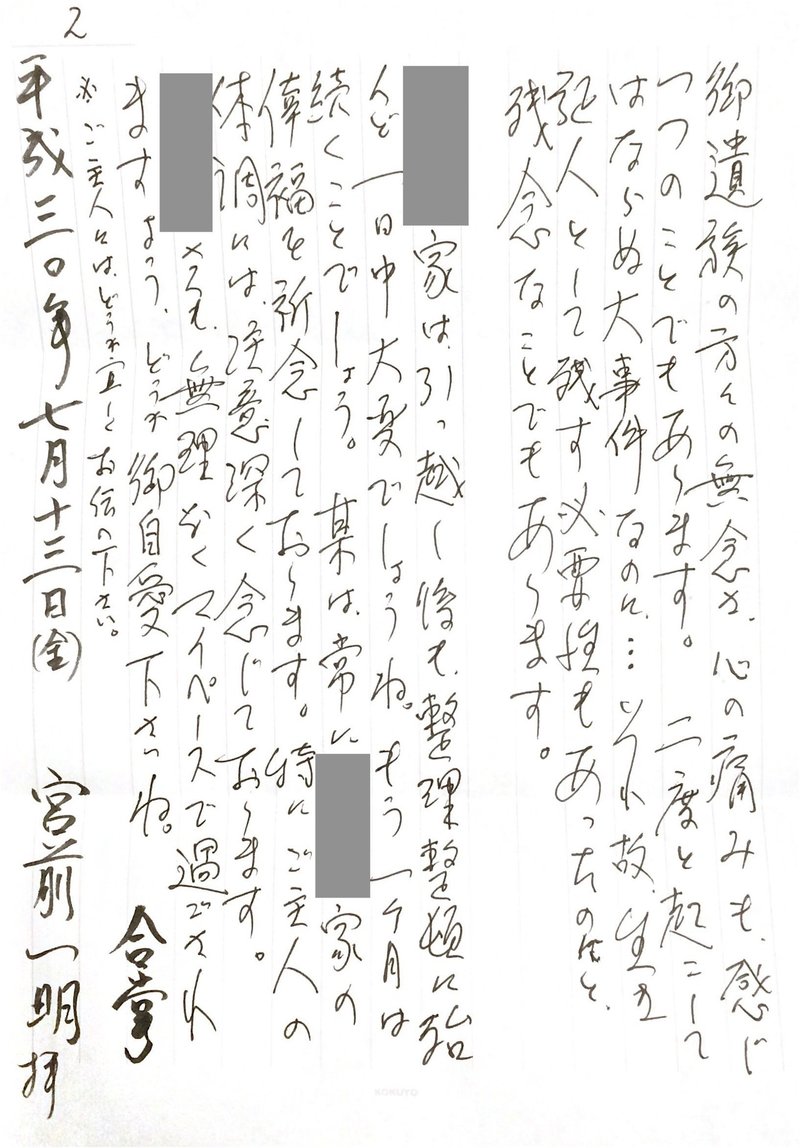 2
御遺族の方々の無念さ、心の痛みも、感じ
つつのことでもあります。 二度と起こして
はならぬ大事件なのに…それ故、生き
証人として残す必要性もあったのにと、
残念なことでもあります。
家は、引っ越し後も、整理整頓に殆
んど一日中大変でしょうね。もう一ヶ月は
続くことでしょう。 某は、常に 家の
倖福を祈念しております。特にご主人の
体調には、注意深く念じております。
さんも、無理なくマイペースで過ごされ
ますよう、どうか御自愛下さいね。 合掌
※ご主人には、どうか宜しくお伝え下さい。
平成三〇年七月十三日(金) 宮前一明拝
KOKUYO